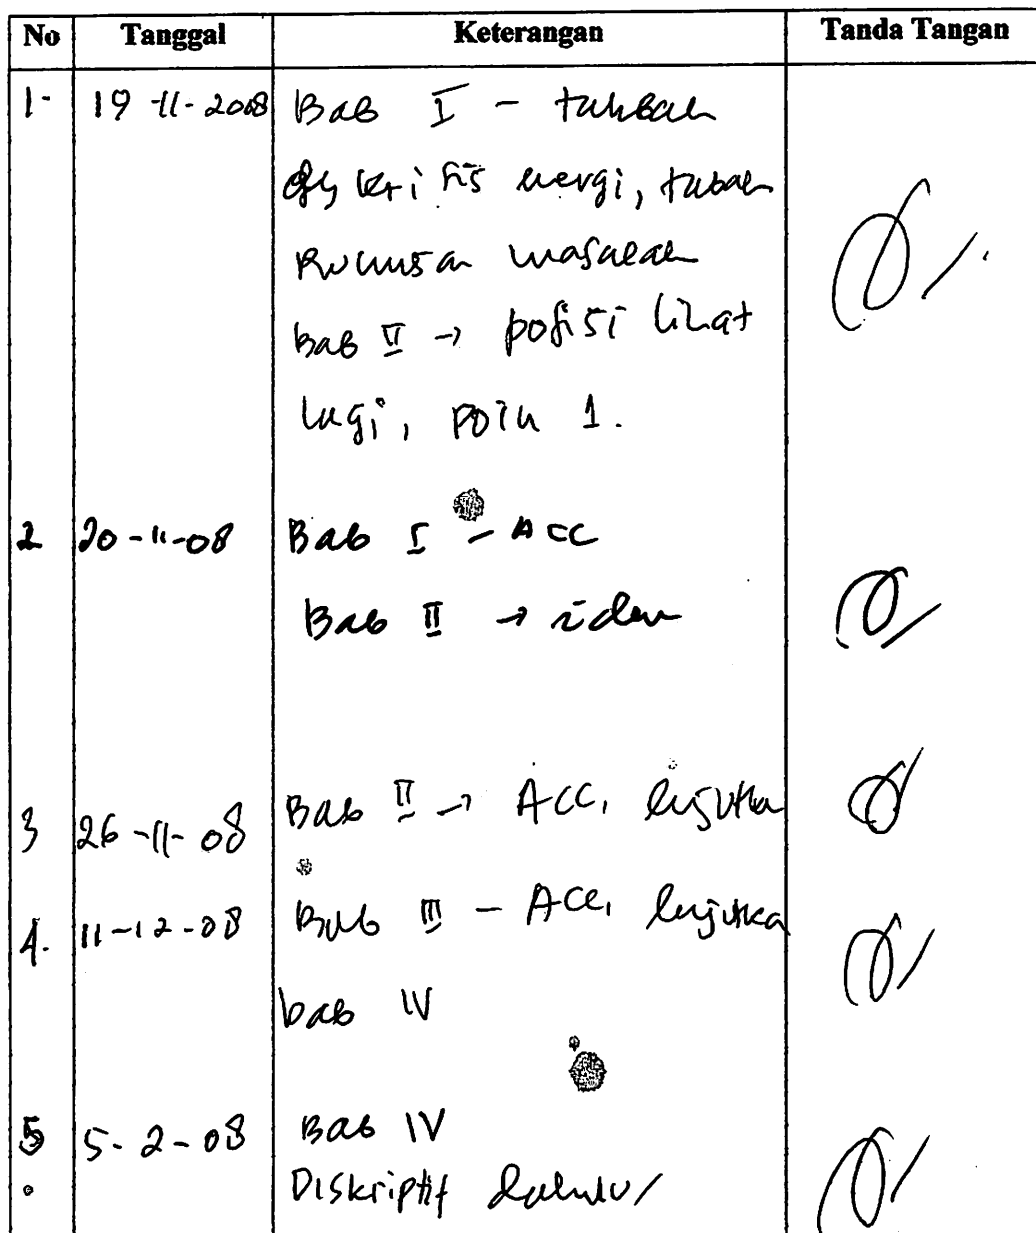 No Tanggal Keterangan Tanda Tangan
1- 19-11-2008 Bab I - tambah
krisis energi, tambah
Rumusan masalah
Bab II → posisi lihat
lagi, poin 1.
2 20-11-08 Bab I - ACC
Bab II → idem
3 26-11-08 Bab II → ACC, lanjutka
4. 11-12-08 Bab III - ACC, lanjutka
bab IV
5 5-2-08 Bab IV
Diskriptif dahulu